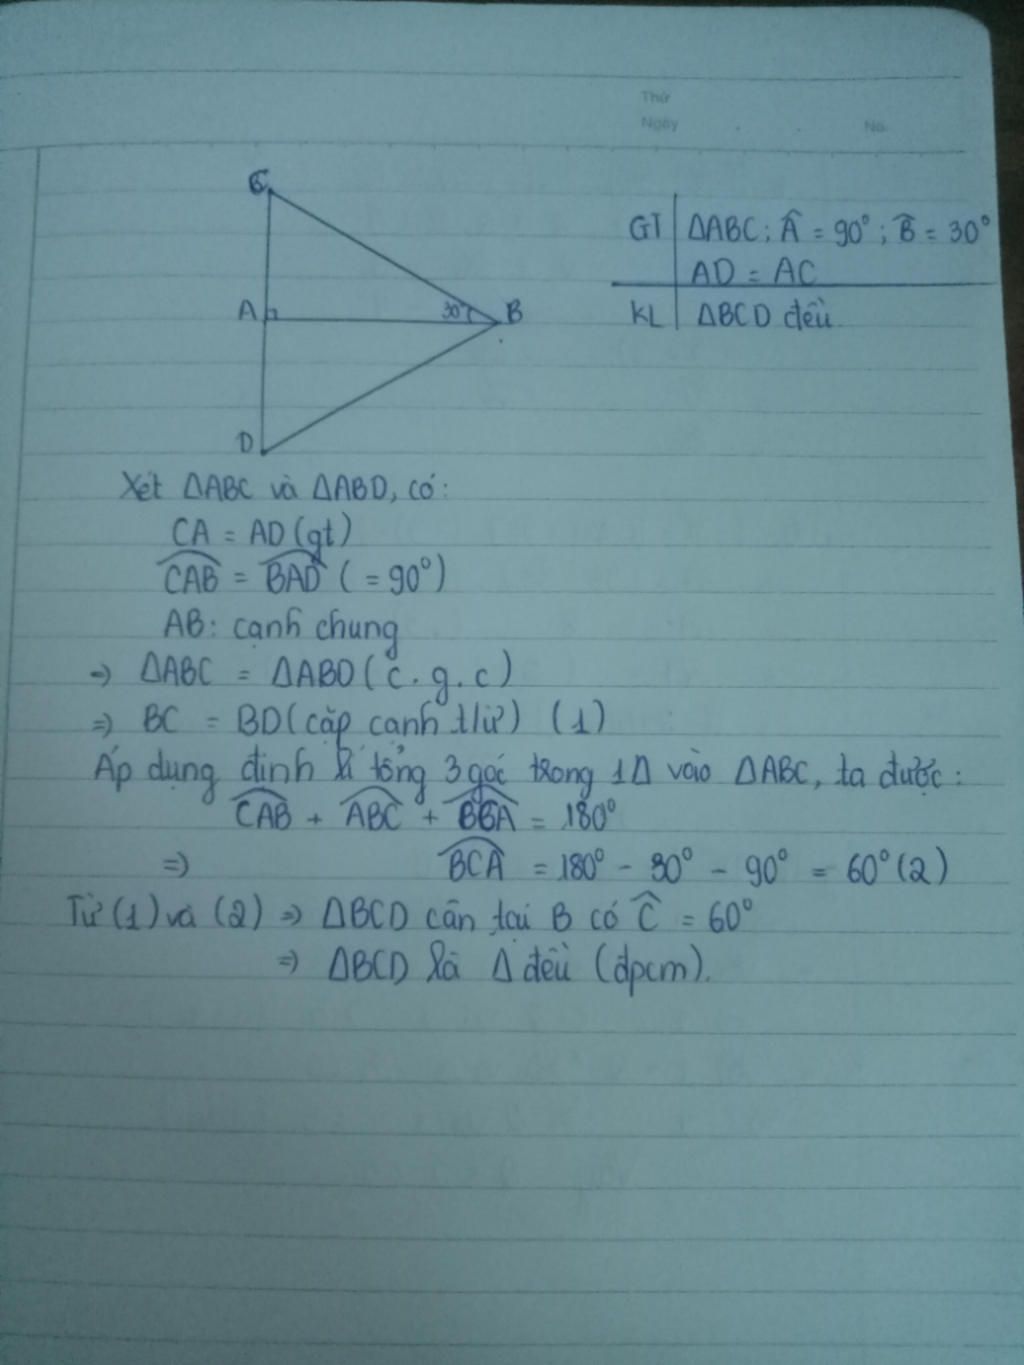 Thứ
Ngày
No.
C
A
30°
B
D
GT ΔABC; Â = 90°; B̂ = 30°
AD = AC
KL ΔBCD đều
Xét ΔABC và ΔABD, có:
CA = AD (gt)
CAB = BAD (= 90°)
AB: cạnh chung
=> ΔABC = ΔABD (c.g.c)
=> BC = BD (cặp cạnh t/ứ) (1)
Áp dụng định lí tổng 3 góc trong 1Δ vào ΔABC, ta được:
CAB + ABC + BCA = 180°
=> BCA = 180° - 30° - 90° = 60° (2)
Từ (1) và (2) => ΔBCD cân tại B có Ĉ = 60°
=> ΔBCD là Δ đều (đpcm).